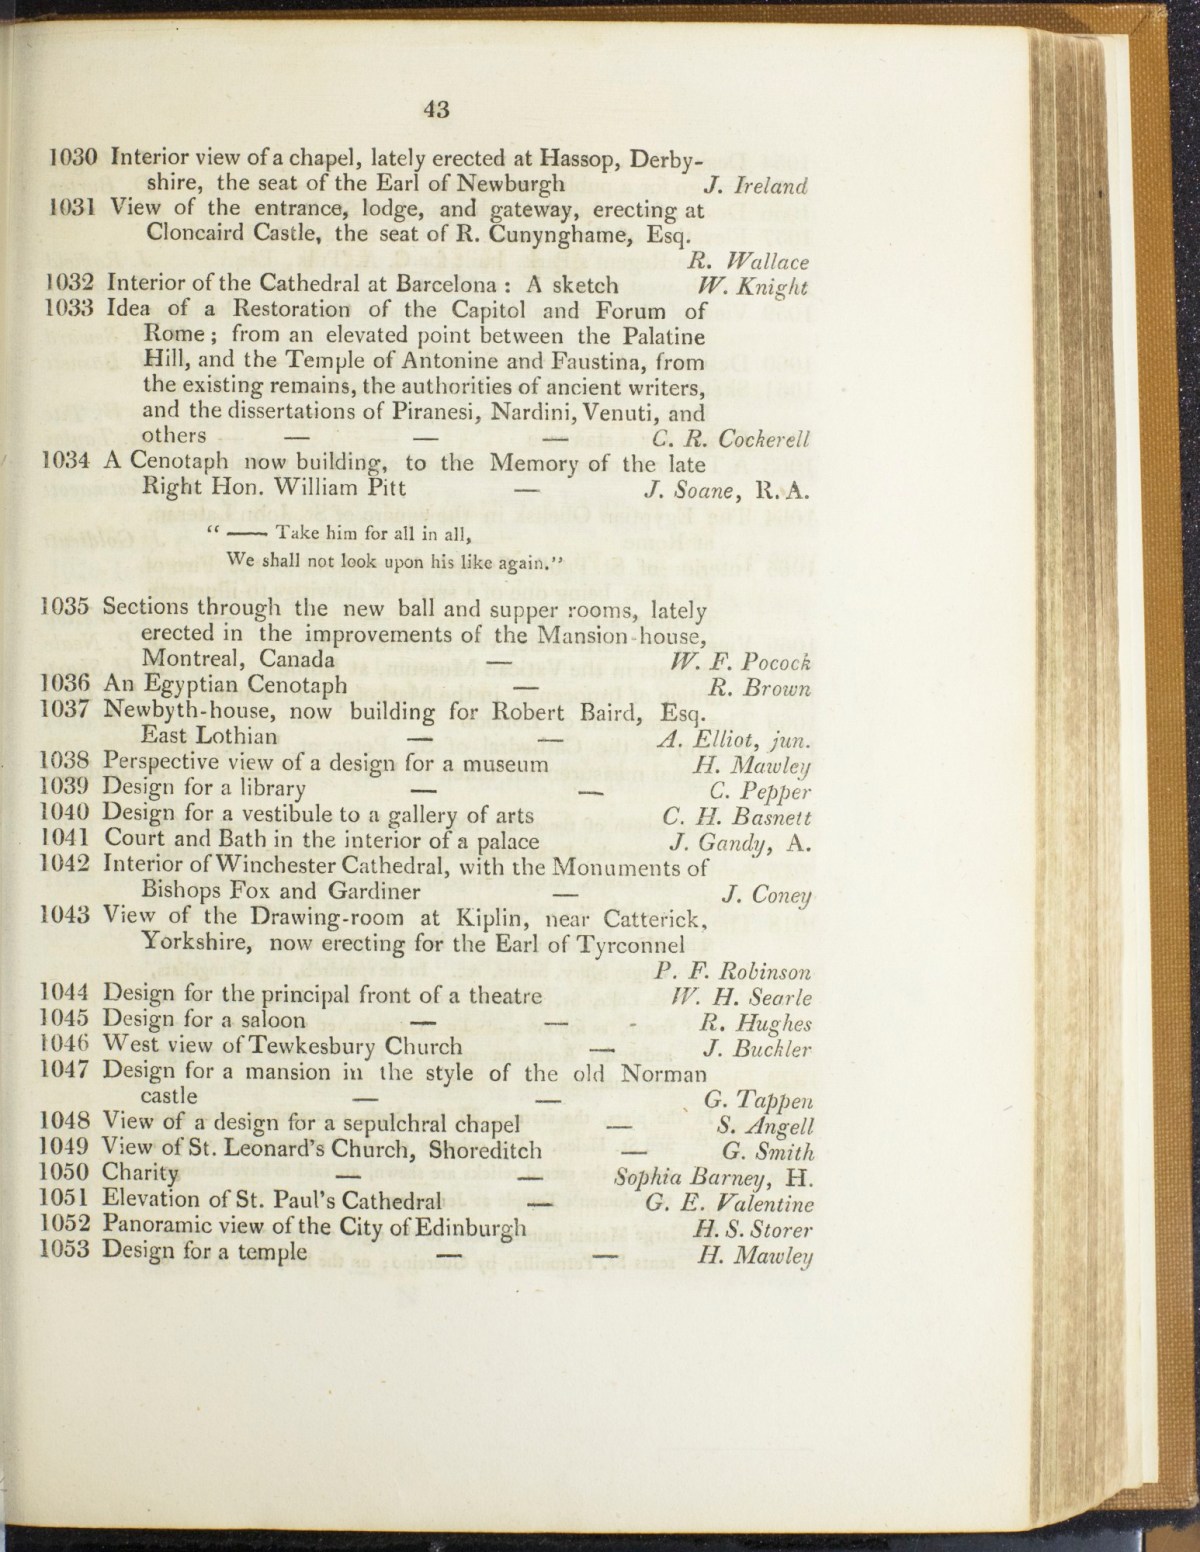 43
1030 Interior view of a chapel, lately erected at Hassop, Derby-
shire, the seat of the Earl of Newburgh J. Ireland
1031 View of the entrance, lodge, and gateway, erecting at
Cloncaird Castle, the seat of R. Cunynghame, Esq.
R. Wallace
1032 Interior of the Cathedral at Barcelona : A sketch W. Knight
1033 Idea of a Restoration of the Capitol and Forum of
Rome ; from an elevated point between the Palatine
Hill, and the Temple of Antonine and Faustina, from
the existing remains, the authorities of ancient writers,
and the dissertations of Piranesi, Nardini, Venuti, and
others — — — C. R. Cockerell
1034 A Cenotaph now building, to the Memory of the late
Right Hon. William Pitt — J. Soane, R. A.
“ —— Take him for all in all,
We shall not look upon his like again.”
1035 Sections through the new ball and supper rooms, lately
erected in the improvements of the Mansion-house,
Montreal, Canada — W. F. Pocock
1036 An Egyptian Cenotaph — R. Brown
1037 Newbyth-house, now building for Robert Baird, Esq.
East Lothian — — A. Elliot, jun.
1038 Perspective view of a design for a museum H. Mawley
1039 Design for a library — — C. Pepper
1040 Design for a vestibule to a gallery of arts C. H. Basnett
1041 Court and Bath in the interior of a palace J. Gandy, A.
1042 Interior of Winchester Cathedral, with the Monuments of
Bishops Fox and Gardiner — J. Coney
1043 View of the Drawing-room at Kiplin, near Catterick,
Yorkshire, now erecting for the Earl of Tyrconnel
P. F. Robinson
1044 Design for the principal front of a theatre W. H. Searle
1045 Design for a saloon — — - R. Hughes
1046 West view of Tewkesbury Church — J. Buckler
1047 Design for a mansion in the style of the old Norman
castle — — G. Tappen
1048 View of a design for a sepulchral chapel — S. Angell
1049 View of St. Leonard's Church, Shoreditch — G. Smith
1050 Charity — — Sophia Barney, H.
1051 Elevation of St. Paul's Cathedral — G. E. Valentine
1052 Panoramic view of the City of Edinburgh H. S. Storer
1053 Design for a temple — — H. Mawley